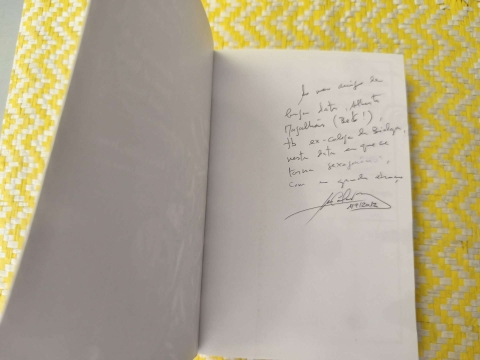 Ao meu amigo de
longa data, Alberto
Magalhães (Beto!),
ex-colega de Biologia,
nesta data em que se
torna sexagenário,
com um grande abraço